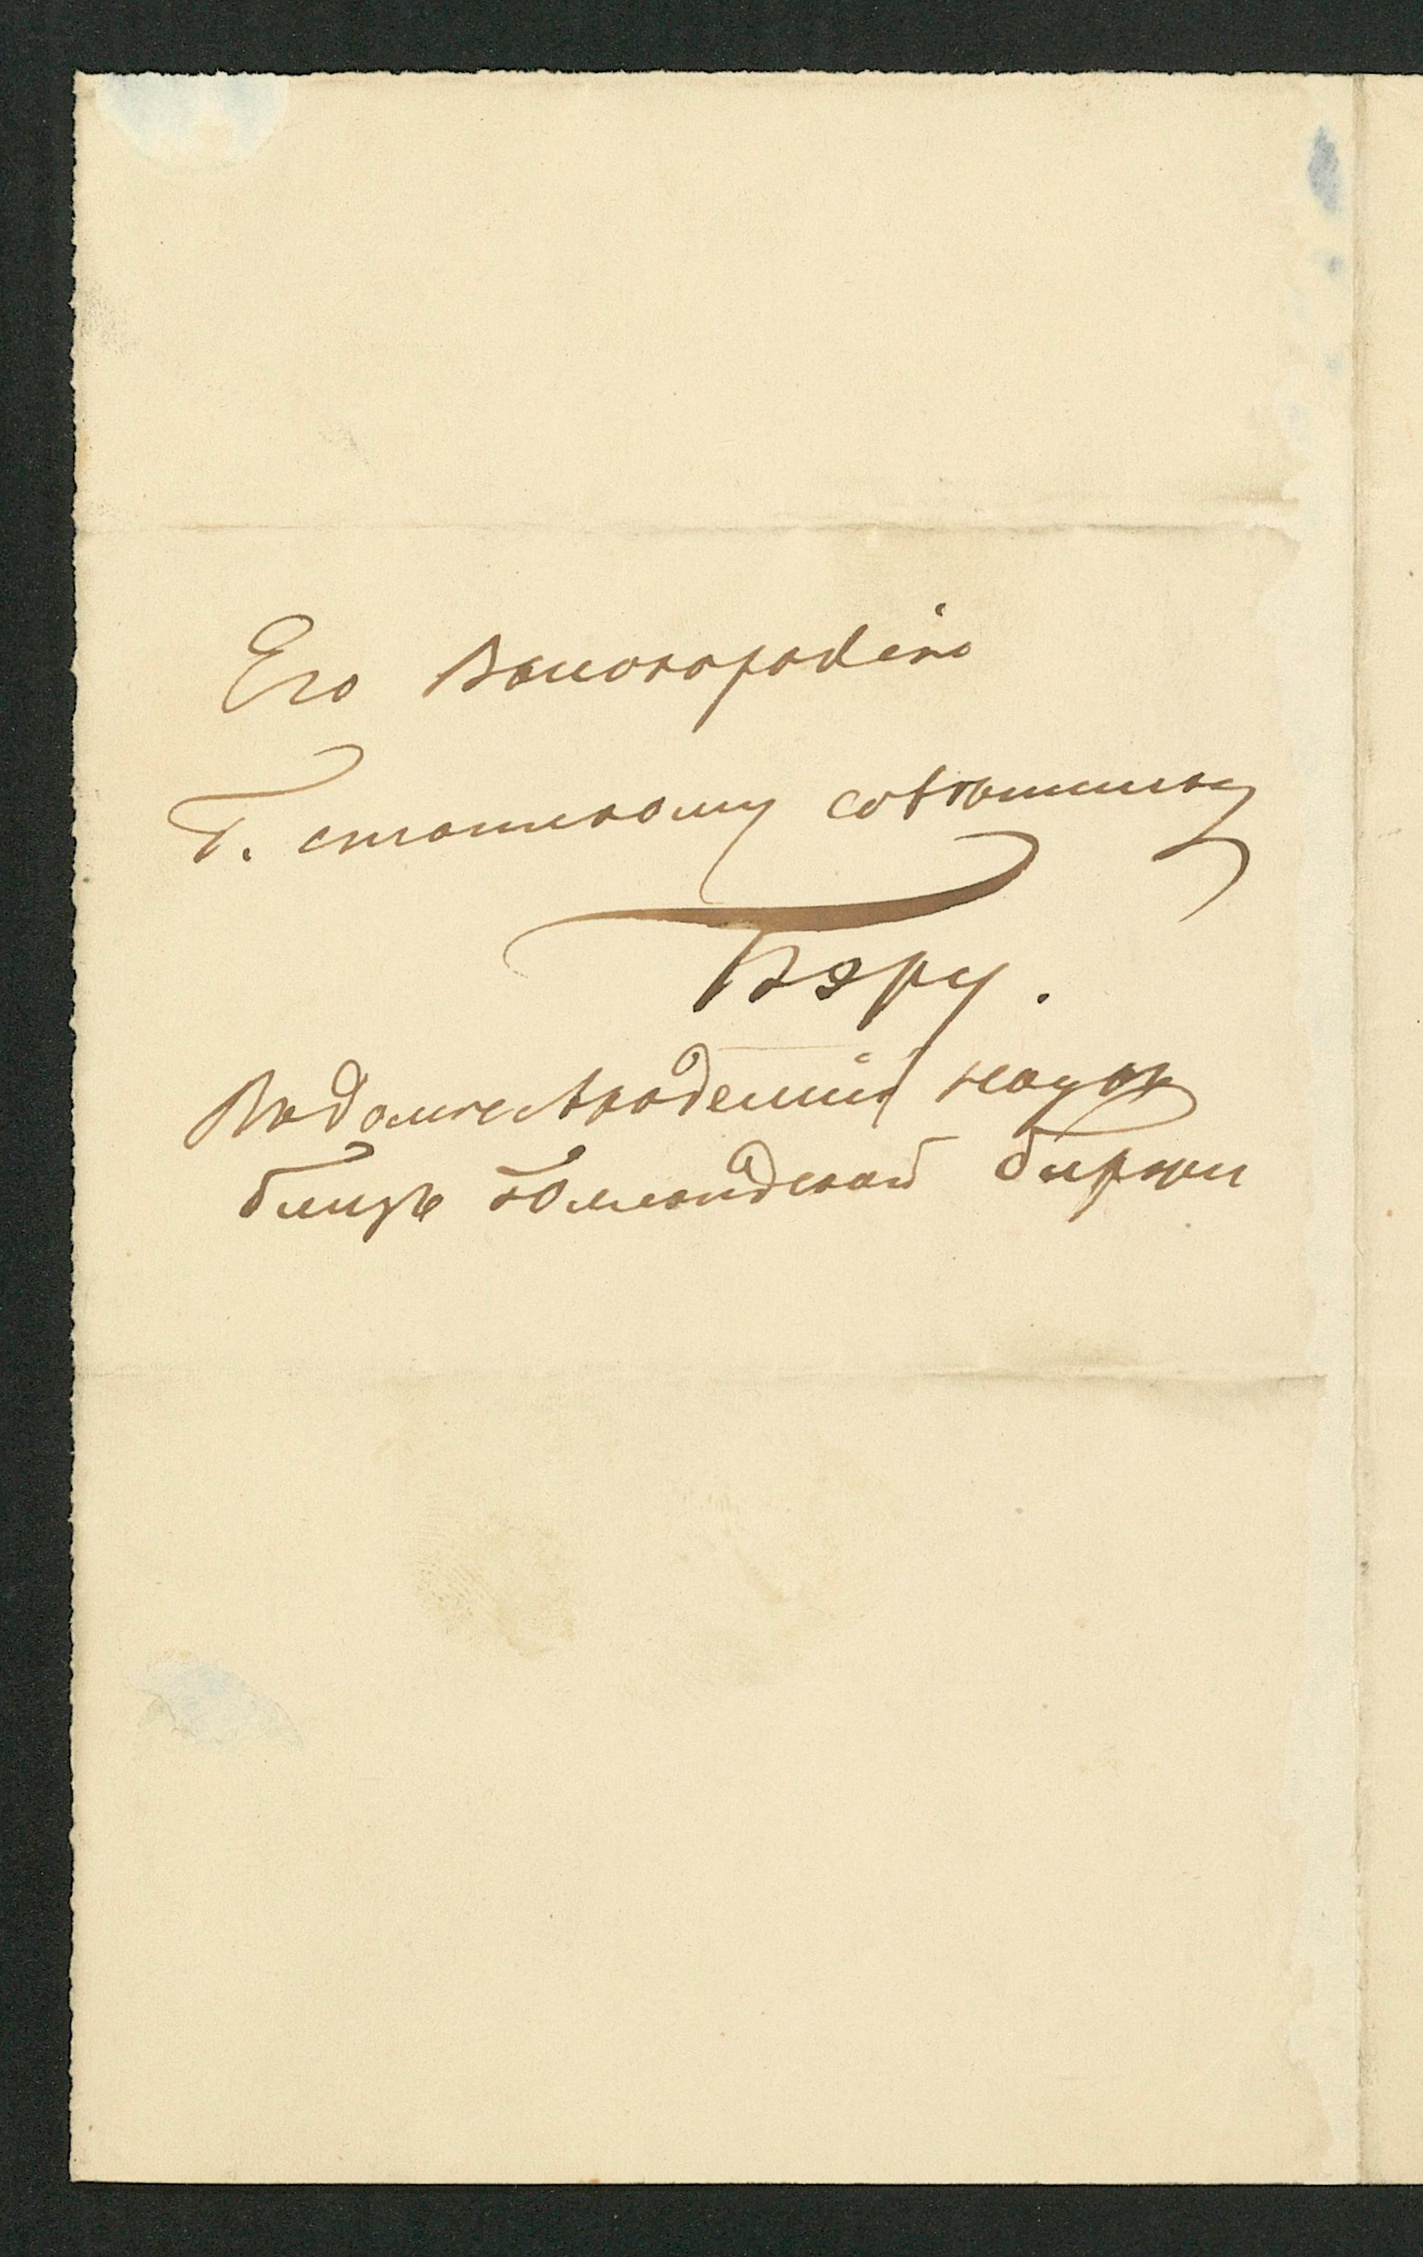 Его Высокородію
Г. статскому совѣтнику
Бэру.
Въ домѣ Академіи наукъ
близъ Голландской биржи